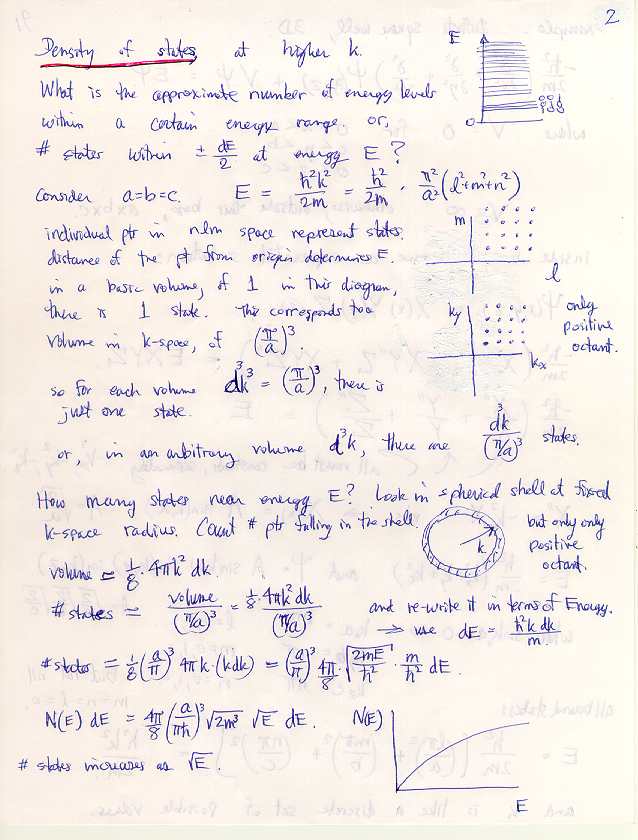 2
Density of states, at higher k.
E
0
What is the approximate number of energy levels
within a certain energy range. or,
# states within ± dE/2 at energy E?
Consider a=b=c. E = ħ²k²/2m = ħ²/2m · π²/a² (l²+m²+n²)
m
l
individual pts in nlm space represent states.
distance of the pt from origin determines E.
in a basic volume, of 1 in this diagram,
there is 1 state. This corresponds to a
volume in k-space, of (π/a)³.
ky
kx
only
positive
octant.
so for each volume d³k = (π/a)³, there is
just one state.
or, in an arbitrary volume d³k, there are d³k/(π/a)³ states.
How many states near energy E? Look in spherical shell at fixed
k-space radius. Count # pts falling in the shell.
k
but only only
positive
octant.
volume ≃ 1/8 · 4πk² dk.
# states ≃ volume/(π/a)³ = 1/8 · 4πk² dk/(π/a)³
and re-write it in terms of Energy.
⟹ use dE = ħ²k dk/m.
# states = 1/8 (a/π)³ 4πk · (kdk) = (a/π)³ 4π/8 · √(2mE/ħ²) · m/ħ² dE.
N(E) dE = 4π/8 (a/πħ)³ √2m³ √E dE.
N(E)
E
# states increases as √E.